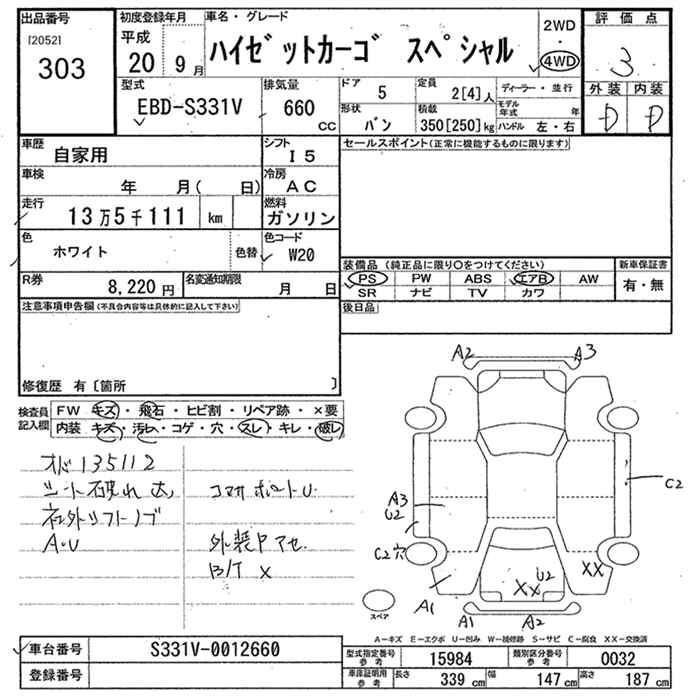 出品番号 初度登録年月 車名・グレード 2WD 評価点
[2052]
303
平成 20年 9月 ハイゼットカーゴ スペシャル ・ 4WD 3
型式 排気量 ドア 5 定員 2[4]人 ディーラー・並行 外装 内装
EBD-S331V 660 cc 形状 バン 積載 350[250]kg モデル年式 年 ハンドル 左・右 D D
車歴 自家用 シフト I5 セールスポイント(正常に機能するものに限ります)
車検 年 月( 日) 冷房 AC
走行 13万5千111 km 燃料 ガソリン
色 ホワイト 色替 色コード W20
装備品(純正品に限り○をつけてください) 新車保証書
R券 8,220円 名変通知期限 月 日 PS PW ABS エアB AW 有・無
SR ナビ TV カワ
注意事項申告欄(不具合内容等は具体的に記入して下さい) 後日品
修復歴 有〔箇所 〕
検査員記入欄 FW キズ・飛石・ヒビ割・リペア跡・×要
内装 キズ・汚れ・コゲ・穴・スレ・キレ・破レ
A2 A3
オド135112
シート破れ大 コマガポートU.
社外シフトノブ
A・U 外装Pアセ.
B/T ×
A3
U2
C2
C2穴
A1 XX U2 XX
A1 A2
スペア
A−キズ E−エクボ U−凹み W−補修跡 S−サビ C−腐食 XX−交換済
車台番号 S331V-0012660 型式指定番号 参考 15984 類別区分番号 参考 0032
登録番号 車庫証明用 参考 長さ 339 cm 幅 147 cm 高さ 187 cm